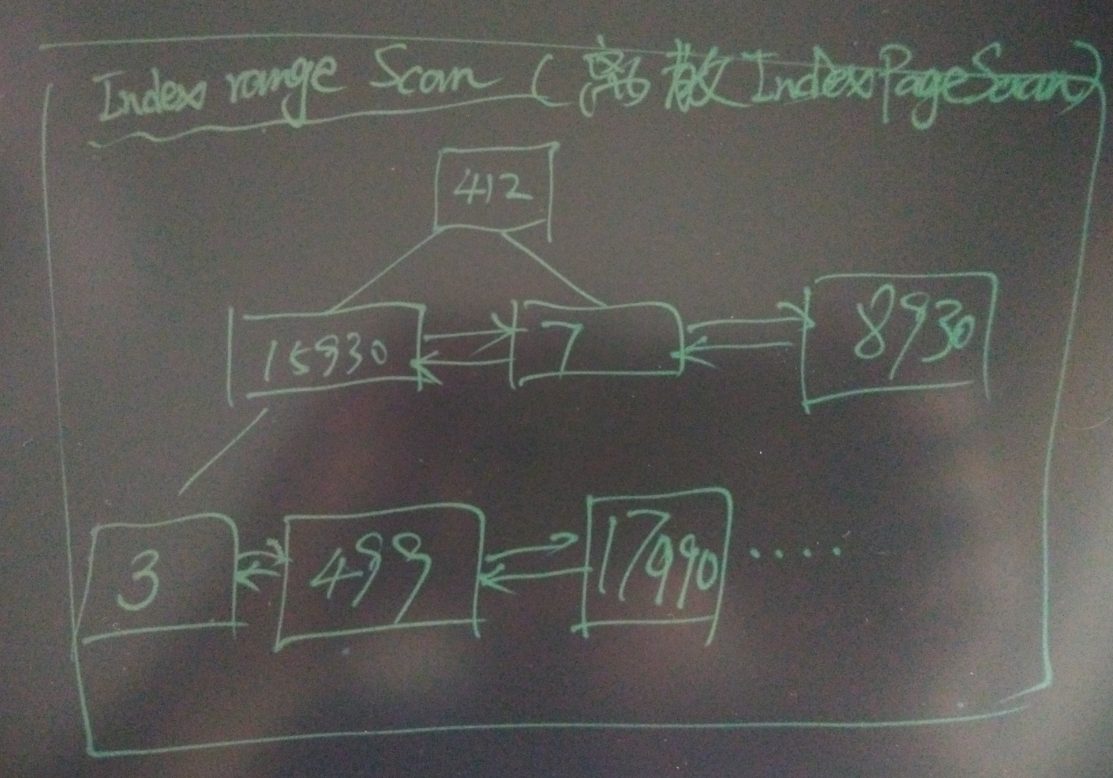 Index range Scan (离散IndexPageScan)
412
15930 7 8930
3 499 17990 .....